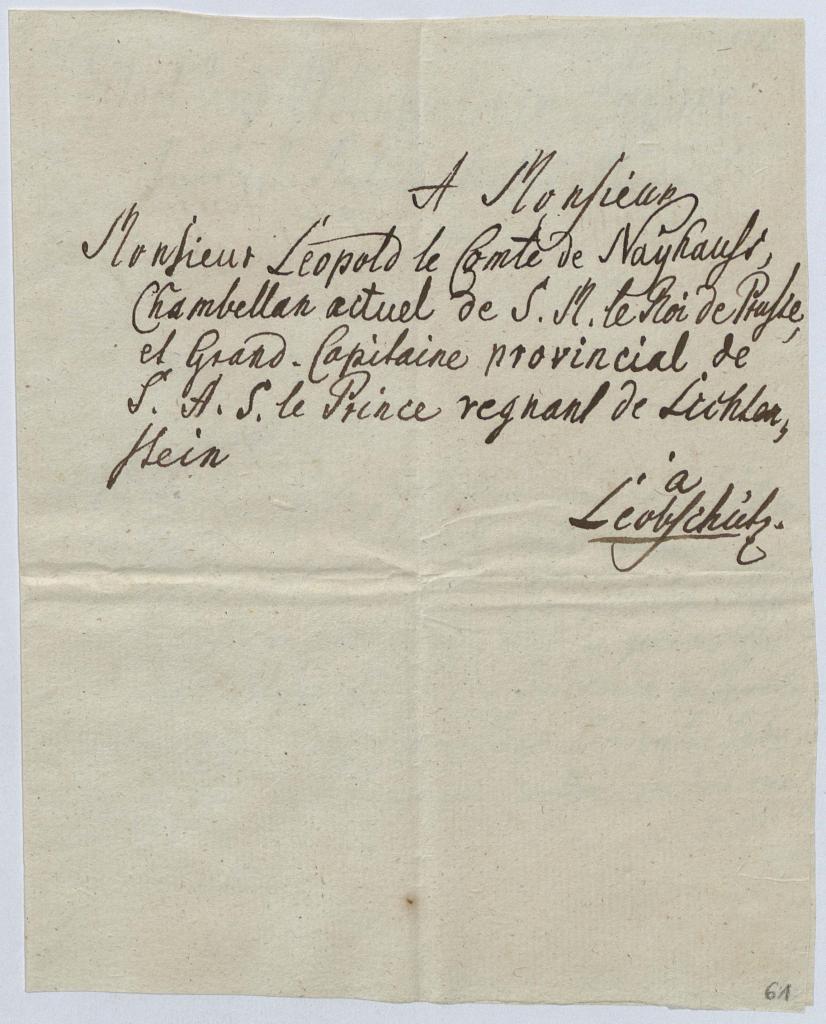 A Monsieur
Monsieur Léopold le Comte de Naÿhauss,
Chambellan actuel de S. M. le Roi de Prusse,
et Grand-Capitaine provincial de
S. A. S. le Prince regnant de Lichten,
stein
à
Léobschütz.
61